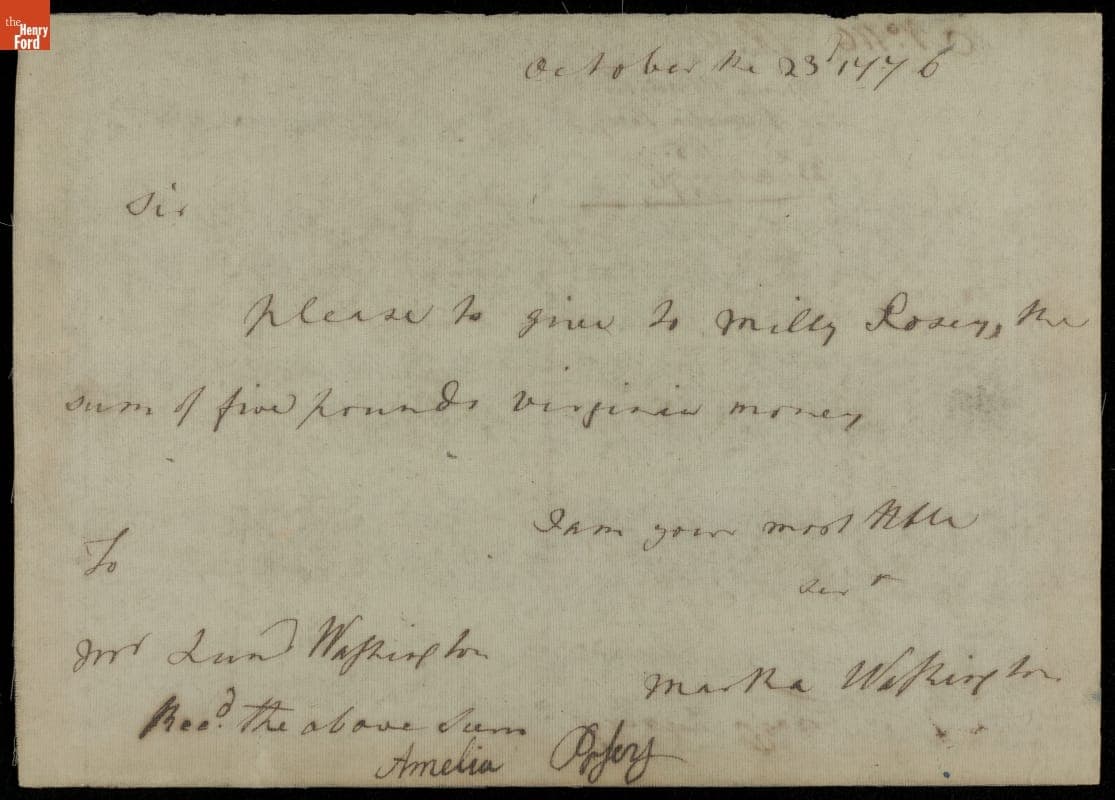 the
Henry
Ford
October the 23d 1776
Sir
please to give to milly Posey, the
sum of five pounds virginia money
I am your most Hble
sert
To
mr Lund Washington
martha Washington
Recd. the above Sum
Amelia Posey